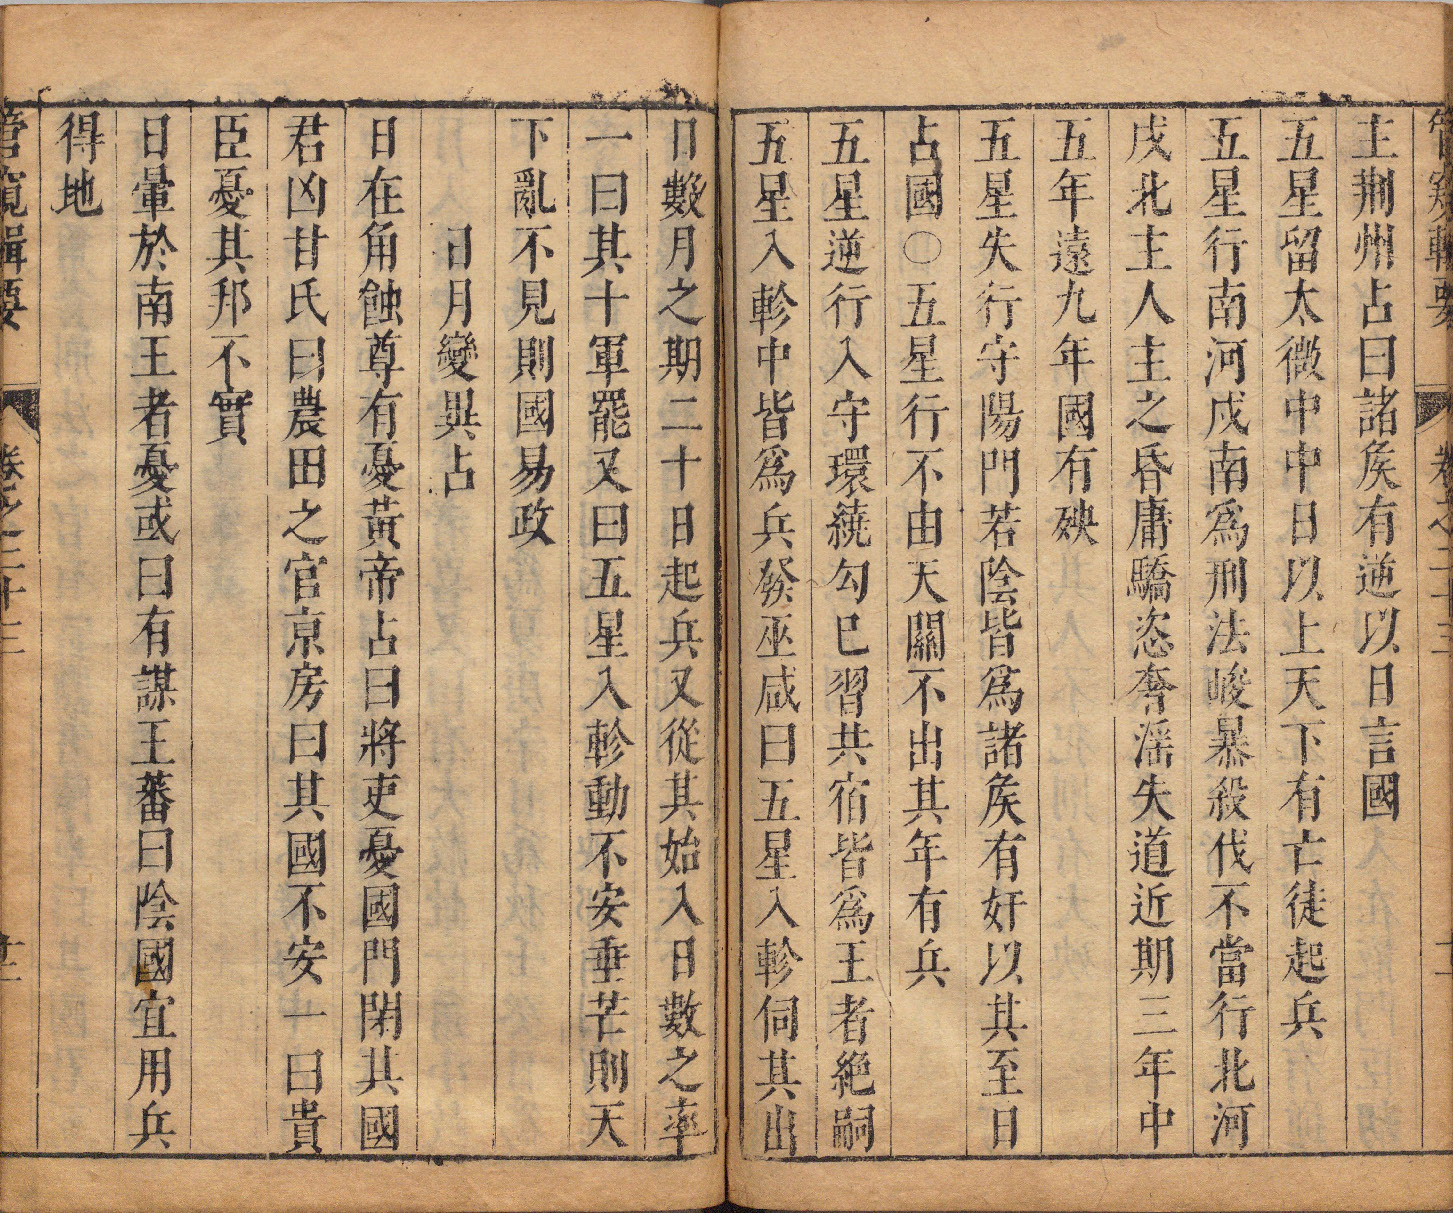 管窺輯要 卷之二十三
主荆州占曰諸矦有逆以日言國
五星留太微中中日以上天下有亡徒起兵
五星行南河戍南爲刑法峻暴殺伐不當行北河
戍北主人主之昏庸驕恣奢滛失道近期三年中
五年遠九年國有殃
五星失行守陽門若陰皆爲諸矦有奸以其至日
占國〇五星行不由天關不出其年有兵
五星逆行入守環繞勾巳習共宿皆爲王者絶嗣
五星入軫中皆爲兵發巫咸曰五星入軫伺其出
日數月之期二十日起兵又從其始入日數之率
一曰其十軍罷又曰五星入軫動不安垂芒則天
下亂不見則國易政
日月變異占
日在角蝕尊有憂黃帝占曰將吏憂國門閉其國
君凶甘氏曰農田之官京房曰其國不安一曰貴
臣憂其邦不實
日暈於南王者憂或曰有謀王蕃曰陰國宜用兵
得地
管窺輯要 卷之二十三